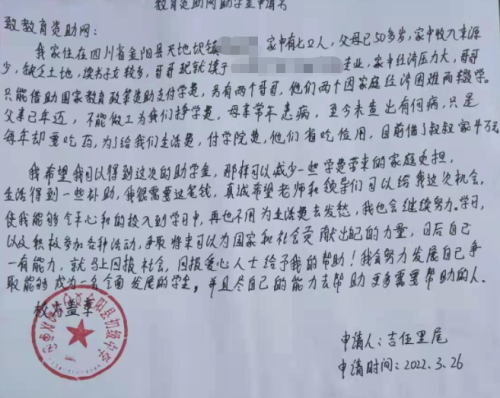 教育资助网助学金申请书
敬教育资助网:
我家住在四川省金阳县天地坝镇 家中有七口人,父母已50多岁,家中收入来源
少,缺乏土地,读书子女较多,哥哥 业,家中经济压力大,哥哥
只能借助国家教育政策资助支付学费,另有两个哥哥,他们两个因家庭经济困难而辍学。
父亲已年迈,不能做工为我们挣学费,母亲常年患病,至今未查出有何病,只是
每年却重吃药,为了给我们生活费,付学院费,他们省吃俭用,目前借了叔叔家
我希望我可以得到这次的助学金,那样可以减少一些学费带来的家庭负担,
生活得到一些补助,我很需要这笔钱,真诚希望老师和领导们可以给我这次机会,
使我能够全心和的投入到学习中,再也不用为生活费去发愁,我也会继续努力学习,
以及积极参加各种活动,争取将来可以为国家和社会贡献出配的力量,日后自己
一有能力,就马上回报社会,回报爱心人士给予我的帮助!我会努力发展自己争
取能够成为一名全面发展的学生,并且尽自己的能力去帮助更多需要帮助的人。
敬为盖章
阳县初级中学
申请人:吉伍里尾
申请时间:2022.3.26